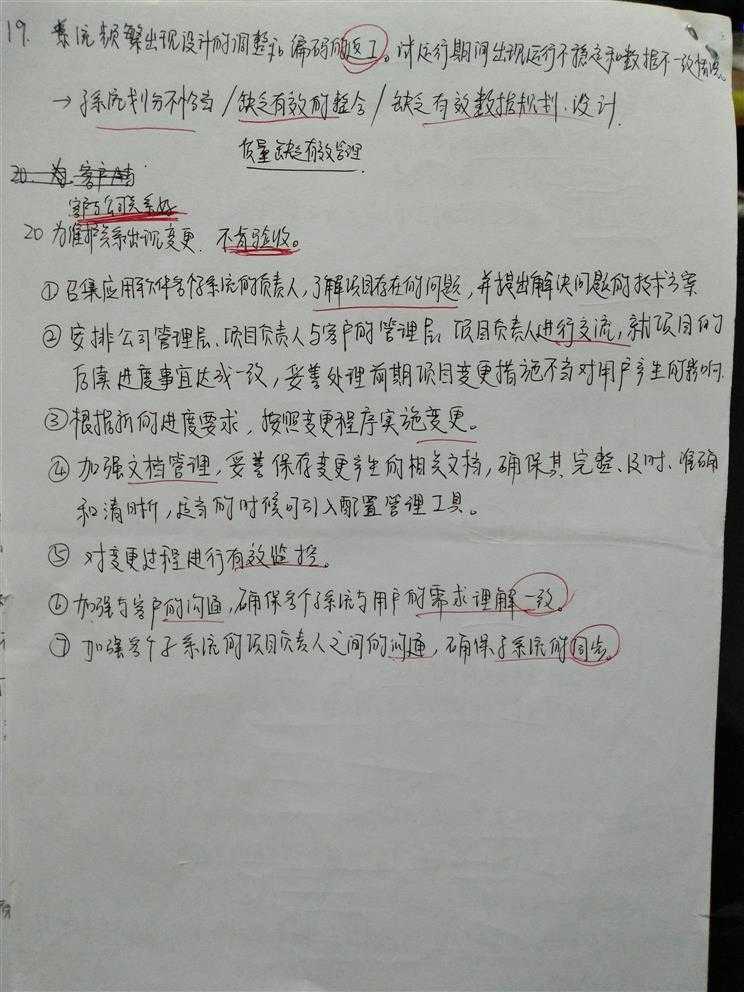 19. 系统频繁出现设计的调整和编码的返工。试运行期间出现运行不稳定和数据不一致情况。
→ 子系统划分不恰当 / 缺乏有效的整合 / 缺乏有效数据规划、设计.
质量缺乏有效管理.
20. 为 客户
客户与公司关系好
20 为维护关系出现变更. 不肯验收。
① 召集应用软件各个子系统的负责人,了解项目存在的问题,并提出解决问题的技术方案
② 安排公司管理层、项目负责人与客户的管理层、项目负责人进行交流,就项目的
后续进度事宜达成一致,妥善处理前期项目变更措施不当对用户产生的影响.
③ 根据新的进度要求,按照变更程序实施变更。
④ 加强文档管理,妥善保存变更产生的相关文档,确保其完整、及时、准确
和清晰,适当的时候可引入配置管理工具。
⑤ 对变更过程进行有效监控。
⑥ 加强与客户的沟通,确保各个子系统与用户的需求理解一致。
⑦ 加强各个子系统的项目负责人之间的沟通,确保子系统的同步。